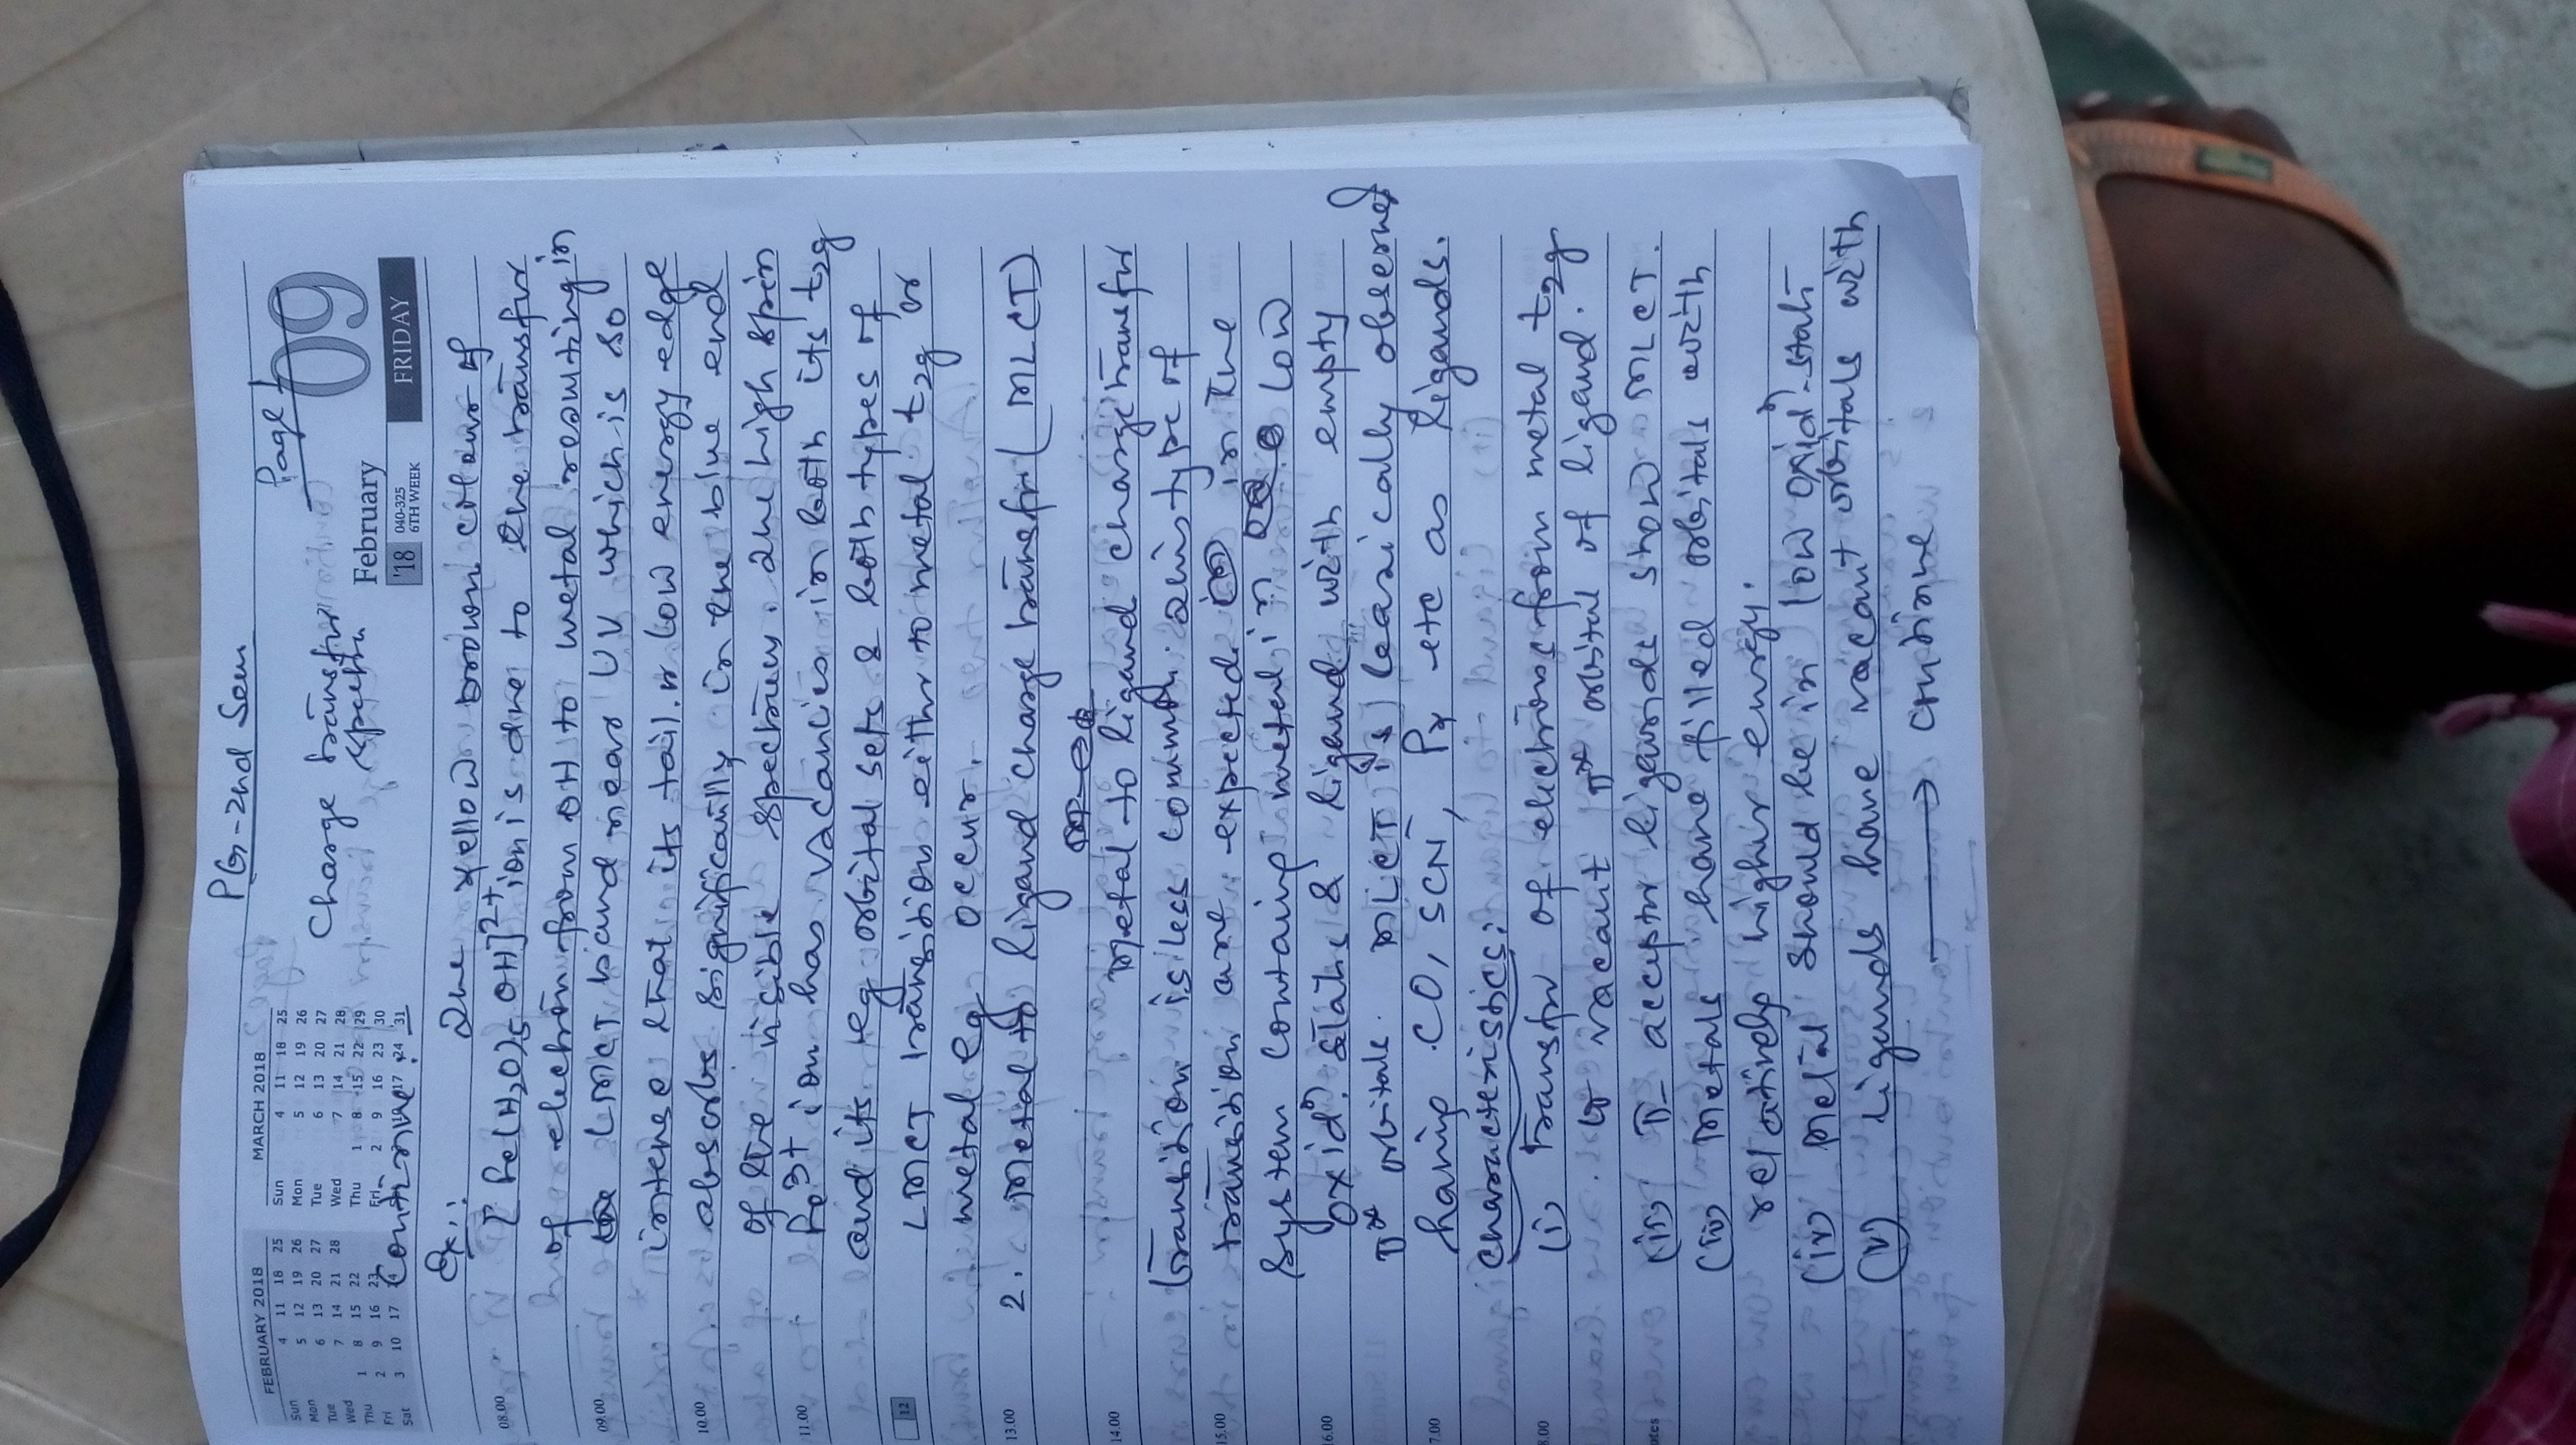 PG-2nd Sem
Page 1
Charge transfer
spectra
February
09
'18 040-325
6TH WEEK
FRIDAY
FEBRUARY 2018
Sun 4 11 18 25
Mon 5 12 19 26
Tue 6 13 20 27
Wed 7 14 21 28
Thu 1 8 15 22
Fri 2 9 16 23
Sat 3 10 17 24
MARCH 2018
Sun 4 11 18 25
Mon 5 12 19 26
Tue 6 13 20 27
Wed 7 14 21 28
Thu 1 8 15 22 29
Fri 2 9 16 23 30
17 24 31
Continue
Ex.: The yellow brown colour of
[Fe(H2O)5 OH]2+ ion is due to the transfer
of electron from OH to metal resulting in
LMCT band near UV which is so
intense that its tail. n low energy edge
absorbs significantly in the blue end
of the visible spectrum. The high spin
Fe3+ ion has vacancies in both its t2g
and its eg orbital sets & both types of
LMCT transitions either to metal t2g or
metal eg occur.
2. Metal to ligand charge transfer (MLCT)
Metal to ligand charge transfer
transition is less common. This type of
transition are expected in the
system containing metal in low
oxidn. state & ligand with empty
π* orbitals. MLCT is basically observed
having CO, SCN-, Px etc as ligands.
Characteristics:
(i) Transfer of electrons from metal t2g
to vacant π* orbital of ligand.
(ii) π- acceptor ligands show MLCT.
(iii) Metals have filled orbitals with
relatively higher energy.
(iv) Metal should be in low oxidn-state
(v) Ligands have vacant orbitals with
→ continue
08.00
09.00
10.00
11.00
12
13.00
14.00
15.00
16.00
7.00
8.00
otes